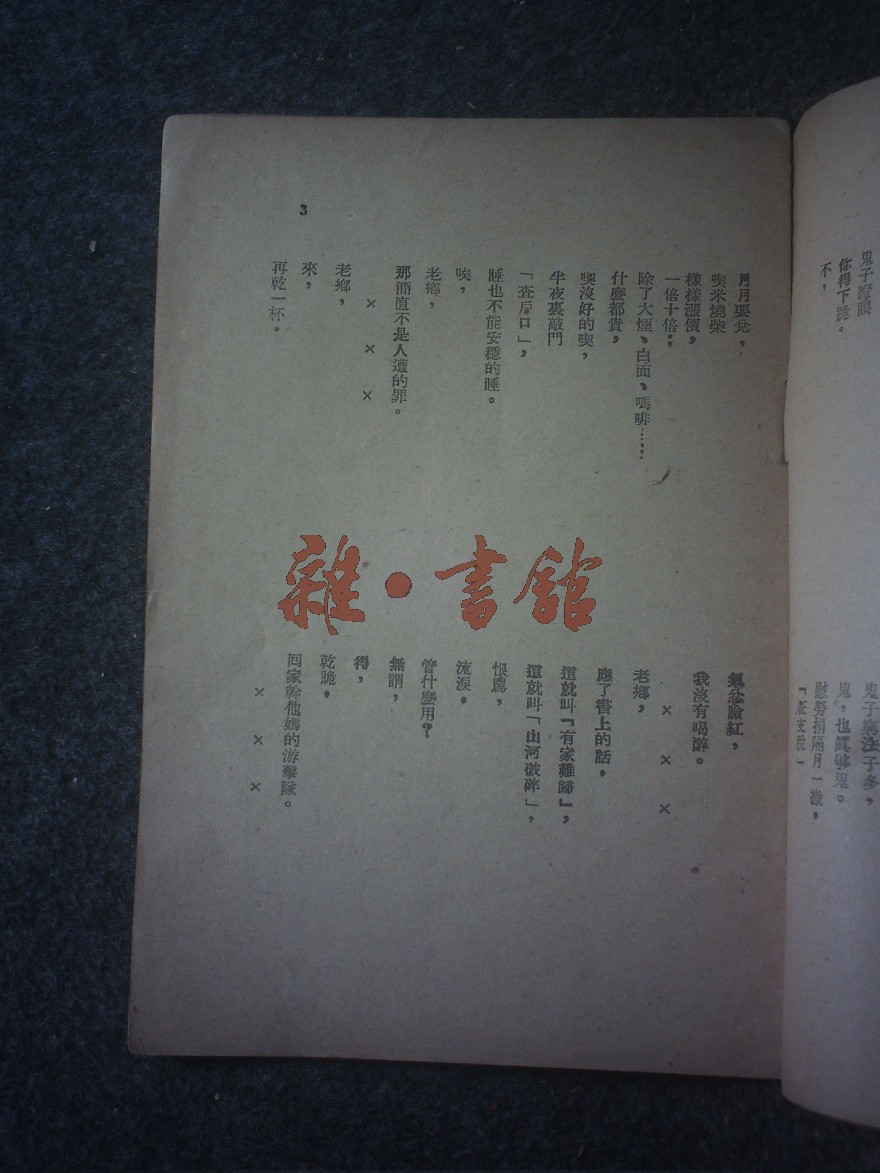 鬼子瞪眼
你得下跪。
不，
鬼子窮法子多，
鬼，也真够鬼。
慰勞捐隔月一繳，
月月要兌，
喫米燒柴
樣樣漲價，
一倍十倍，
除了大煙、白面、嗎啡……
什麼都貴，
喫沒好的喫，
半夜裏敲門
「査戶口」，
睡也不能安穩的睡。
唉，
老鄉，
那簡直不是人遭的罪。
× × ×
老鄉，
來，
再乾一杯。
臉紅，
我沒有喝醉。
× × ×
老鄉，
應了書上的話，
這就叫「有家難歸」，
這就叫「山河破碎」，
恨鷹，
流淚，
管什麼用？
無謂，
得，
乾脆，
回家幹他媽的游擊隊。
× × ×
3
雜·書館